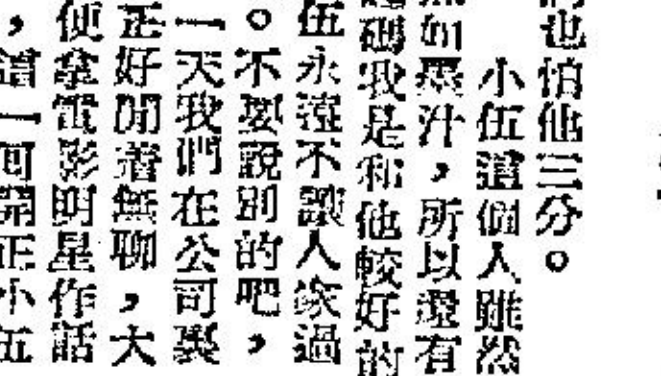 也怕他三分。
小伍這個人雖然
如墨汁，所以還有
碼我是和他較好的
伍永遠不讓人家過
。不要說別的吧，
一天我們在公司裏
正好閒着無聊，大
便拿電影明星作話
，這一可開正小伍